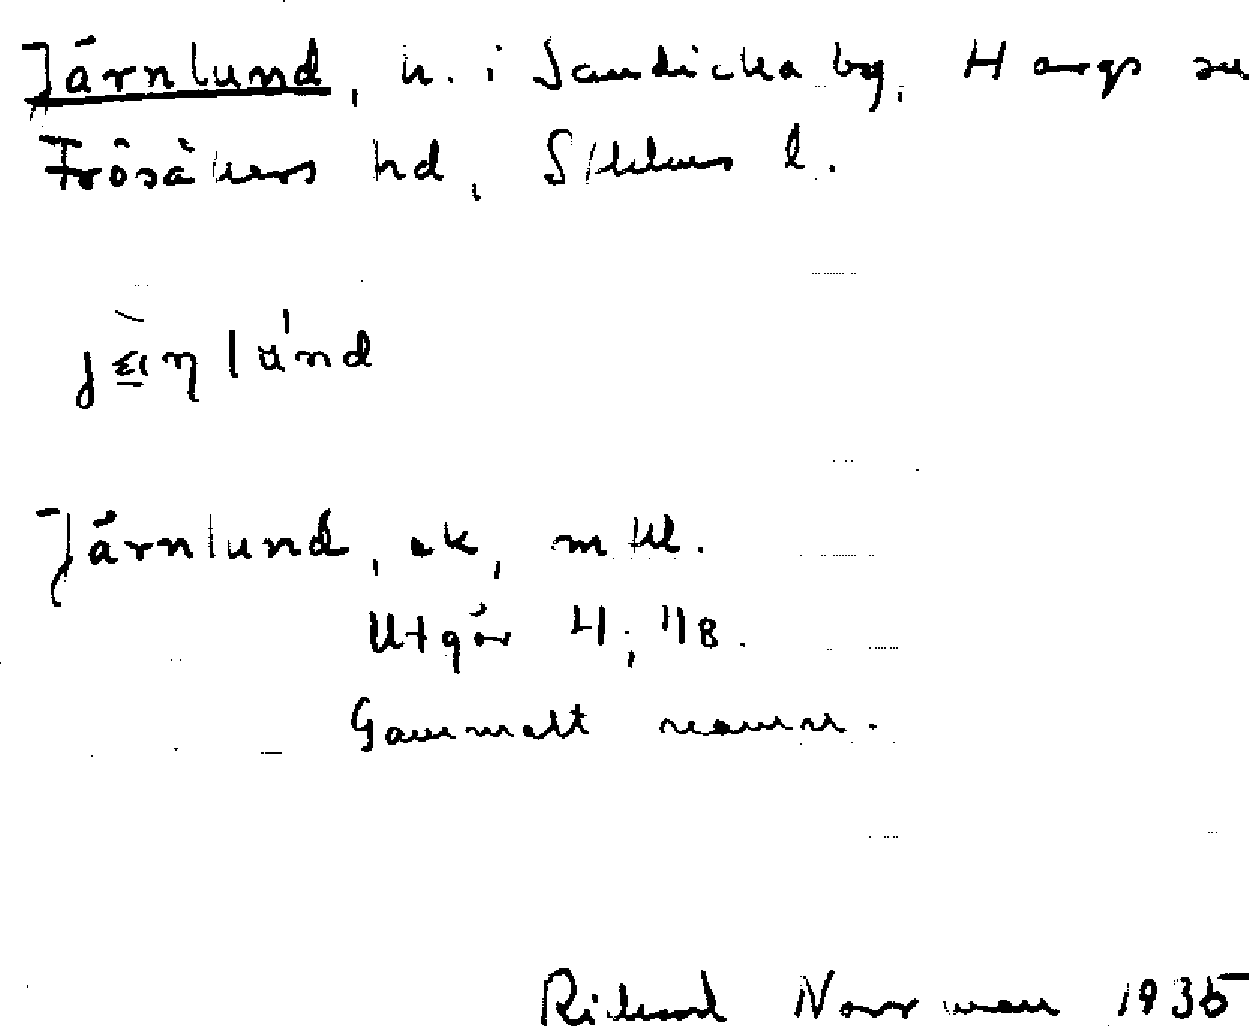 Järnlund, h. i Sandicka by, Hargs sn
Frösåkers hd, Sthlms l.
Järnlund, ek, mtl.
Utgår H, 1/8.
Gammalt namn.
Rikard Norrman 1935